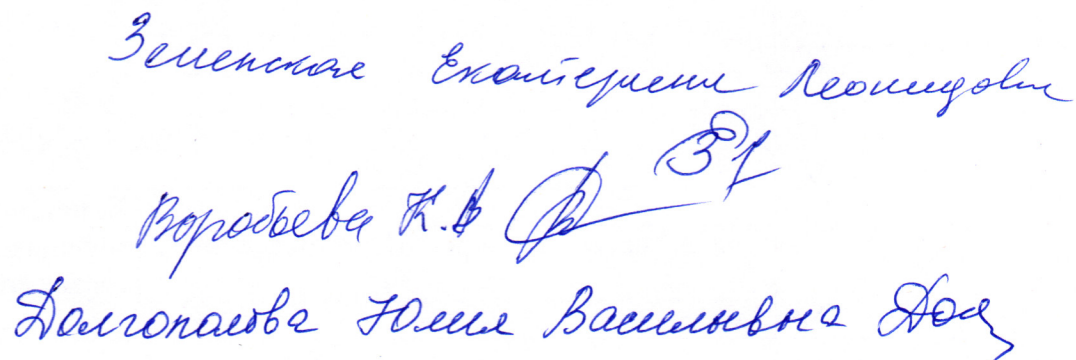 Земенская Екатерина Леонидовна
Воробьева К.В
Долгополова Юлия Васильевна